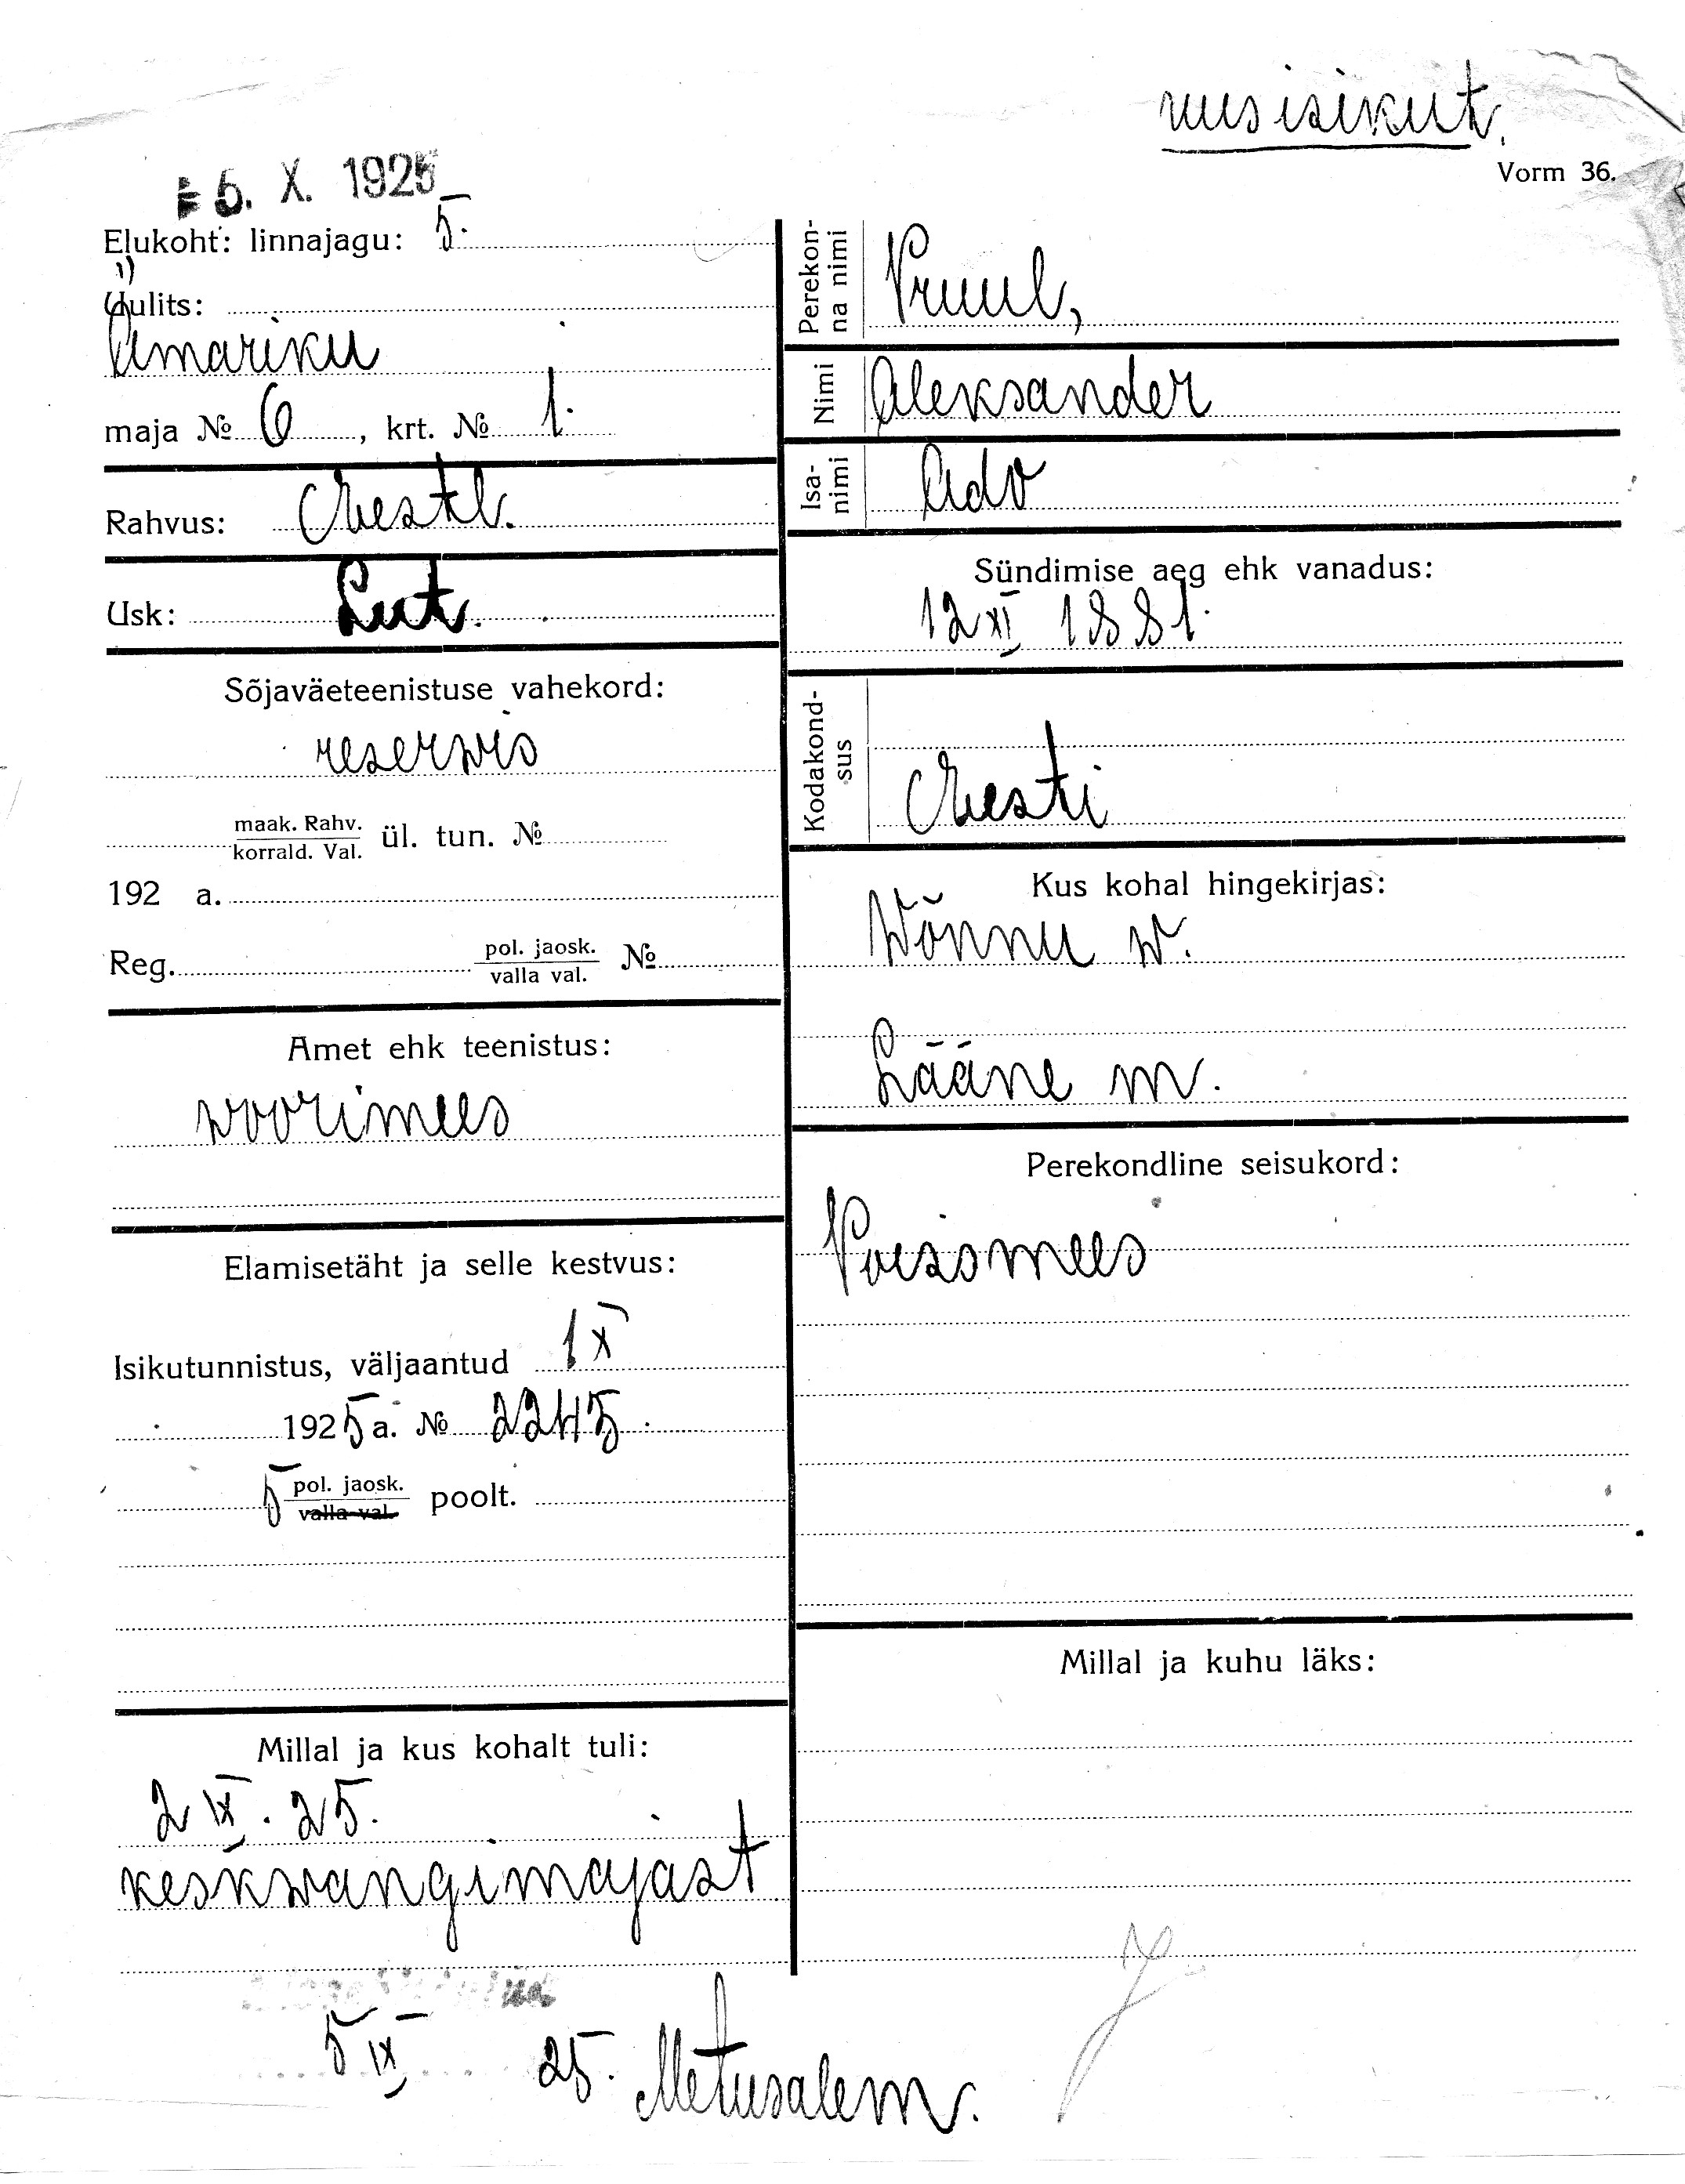 uus isikut.
Vorm 36.
5. X. 1925
Elukoht: linnajagu: 5.
Uulits:
Amariku
maja № 6, krt. № 1.
Rahvus: Eestl.
Usk: Lut.
Sõjaväeteenistuse vahekord:
reserwis
maak. Rahv.
korrald. Val. ül. tun. №
192 a.
Reg. pol. jaosk.
valla val. №
Amet ehk teenistus:
woorimees
Elamisetäht ja selle kestvus:
Isikutunnistus, väljaantud 1 X
1925 a. № 2245.
5 pol. jaosk.
valla val. poolt.
Millal ja kus kohalt tuli:
2 IX. 25.
keskwangimajast
Perekon-
na nimi Pruul,
Nimi Aleksander
Isa-
nimi Ado
Sündimise aeg ehk vanadus:
12 XI 1881.
Kodakond-
sus
Eesti
Kus kohal hingekirjas:
Wõnnu w.
Lääne m.
Perekondline seisukord:
Poissmees
Millal ja kuhu läks:
5 IX 25. Metusalem.